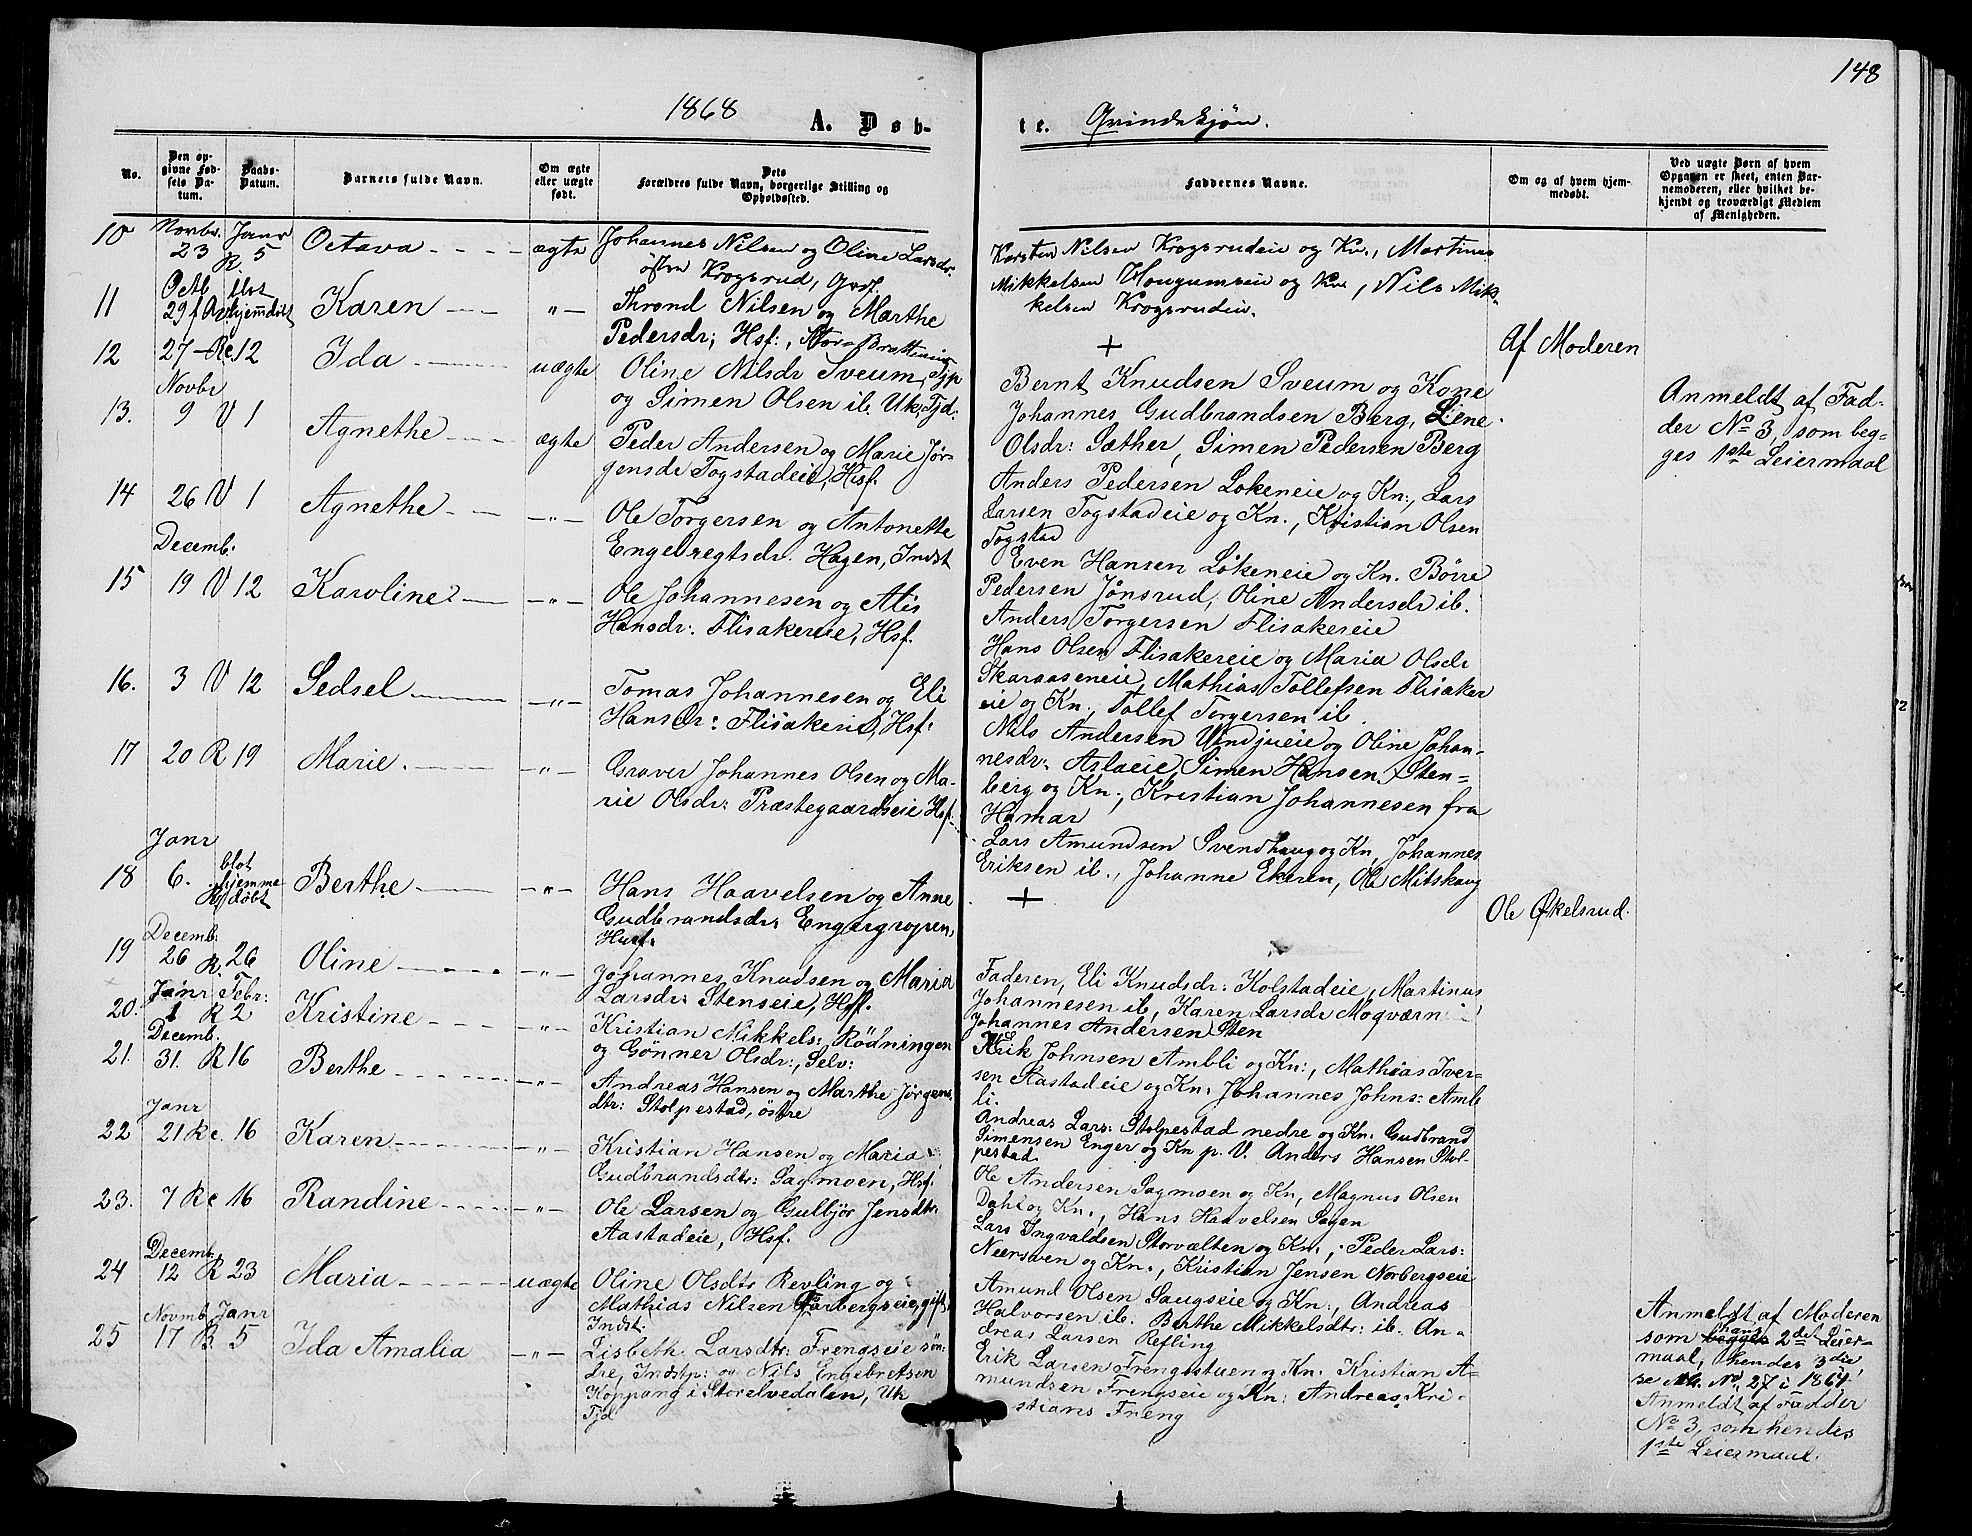 148
1868 A. Døb- te. Qvindekjøn.
No.
Den op-
givne Fød-
sels Da-
tum.
Daabs-
Datum.
Barnets fulde Navn.
Om ægte
eller uægte
født.
Dets
Forældres fulde Navn, borgerlige Stilling og
Opholdssted.
Faddernes Navne.
Om og af hvem hjem-
medøbt.
Ved uægte Børn af hvem
Opgaven er skeet, enten Bar-
nemoderen, eller hvilket be-
kjendt og troværdigt Medlem
af Menigheden.
10 Novbr. 23 R. Janr 5 Octava ægte
Johannes Nilsen og Oline Larsdr.
östre Krogsrud,
Karsten Nilsen Krogsrudeie og Kn., Martinus
Mikkelsen Hougumseie og Kn, Nils Mik-
kelsen Krogsrudeie.
11 Octb 29 blot hjemdöbt Karen "
Thrond Nilsen og Marthe
Pedersdr; Hsf:,
+
Af Moderen
12 27 Re 12 Ida uægte
Oline Nilsdr Sveum, Tjp
og Simen Olsen ib. Uk, Tjd.
Bernt Knudsen Sveum og Kone
Johannes Gudbrandsen Berg, Lene
Olsdr: Sæther, Simen Pedersen Berg
Anmeldt af Fad-
der No 3, som beg-
ges 1ste Leiermaal
13. Novbr 9 V 1 Agnethe ægte
Peder Andersen og Marie Jör-
gensdr Togstadeie, Hsf.
Anders Pedersen Lökeneie og Kn:, Lars
Larsen Togstadeie og Kn., Kristian Olsen
Togstad
14 26 V 1 Agnethe "
Ole Torgersen og Antonette
Engebregtsdr. Hagen, Indst
Even Hansen Lökeneie og Kn. Börre
Pedersen Jönsrud, Oline Andersdr ib.
Anders Torgersen Flisakereie
15 Decemb: 19 V 12 Karoline "
Ole Johannesen og Alis
Hansdr: Flisakereie, Hsf.
Hans Olsen Flisakereie og Maria Olsdr
Skaraaseneie, Mathias Tollefsen Flisaker
eie og Kn., Tollef Torgersen ib.
16. 3 V 12 Sedsel "
Tomas Johannesen og Eli
Hansdr: Flisakereie, Hsf:
Nils Andersen Vindjueie og Oline Johan-
nesdr: Aslaeie, Simen Hansen Sten-
berg og Kn:, Kristian Johannesen fra
Hamar
17 20 R 19 Marie. "
Graver Johannes Olsen og Ma-
rie Olsdr: Præstegaardseie Hsf.
Lars Amundsen Svendhaug og Kn, Johannes
Eriksen ib., Johanne Ekeren, Ole Mitskaug
18 Janr 6. blot hjemme döbt Berthe "
Hans Haavelsen og Anne
Gudbrandsdr: Engergropen,
Husf:
+
Ole Økelsrud.
19 Decemb: 26 R. 26 Oline "
Johannes Knudsen og Maria
Larsdr: Stenseie, Hsf.
Faderen, Eli Knudsdr: Kolstadeie, Martinus
Johannesen ib, Karen Larsdr Mogværn
Johannes Andersen Sten
20. Janr 1 R Febr: 2 Kristine "
Kristian Mikkels: Rödningen
og Gönner Olsdr:, Selv:
Erik Johnsen Ambli og Kn:, Mathias Iver-
sen Aastadeie og Kn: Johannes Johns: Amb
li.
21. Decemb. 31. R 16 Berthe "
Andreas Hansen og Marthe Jörgens
dtr: Stolpestad, östre
Andreas Lars: Stolpestad nedre og Kn: Gudbrand
Simensen Enger og Kn p. V. Anders Hansen Stol-
pestad
22 Janr 21 Re. 16 Karen "
Kristian Hansen og Maria
Gudbrandsdtr: Sagmoen, Hsf.
Ole Andersen Sagmoen og Kn, Magnus Olsen
Dahl og Kn., Hans Haavelsen Sagen
23. 7 Re 16 Randine "
Ole Larsen og Gulbjör Jensdtr:
Aastadeie, Hsf.
Lars Ingvaldsen Storvælten og Kn., Peder Lars:
Neersveen og Kn., Kristian Jensen Norbergseie
24 Decemb. 12 R 23 Maria uægte
Oline Olsdtr Revling og
Mathias Nilsen Farbergseie, gift,
Indst:
Amund Olsen Saugseie og Kn:, Andreas
Halvorsen ib. Berthe Mikkelsdtr: ib. An-
dreas Larsen Refling
Anmeldt af Moderen
som begges hans 2det Leier-
maal, hendes 3die,
se No. 27 i 1861
25 Novmb. 17 R. Janr 5 Ida Amalia "
Lisbeth Larsdtr: Frengseie sön:
dre, Indstp: og Nils Engebretsen
Koppang i Storelvedalen, Uk
Tjd
Erik Larsen Frengstuen og Kn. Kristian A-
mundsen Frengseie og Kn: Andreas Kri-
stians Freng
Anmeldt af Fadder
No 3, som hendes
1ste Leiermaal.